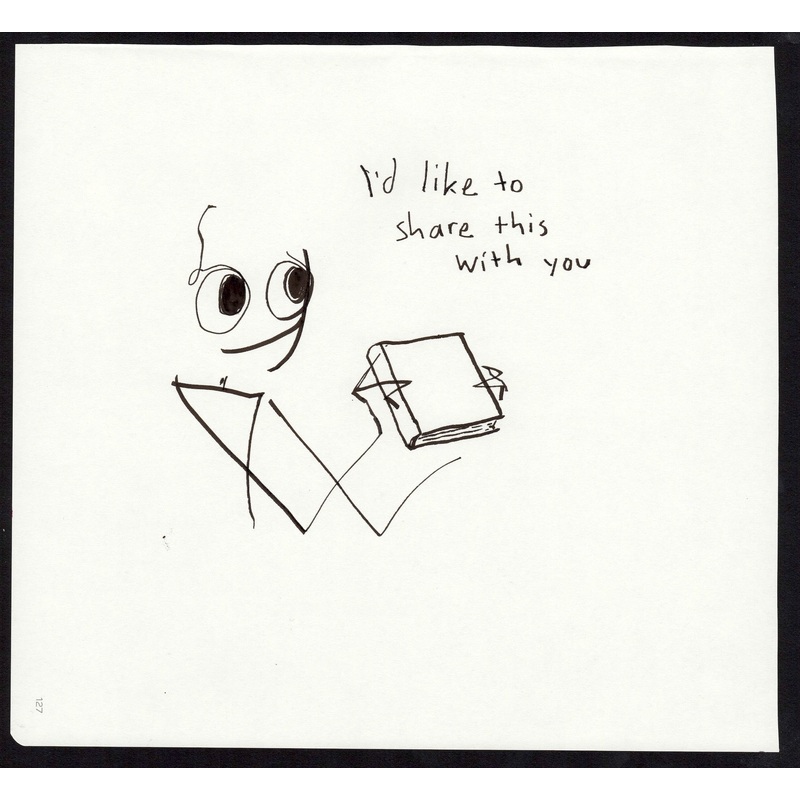 I'd like to
share this
with you
127